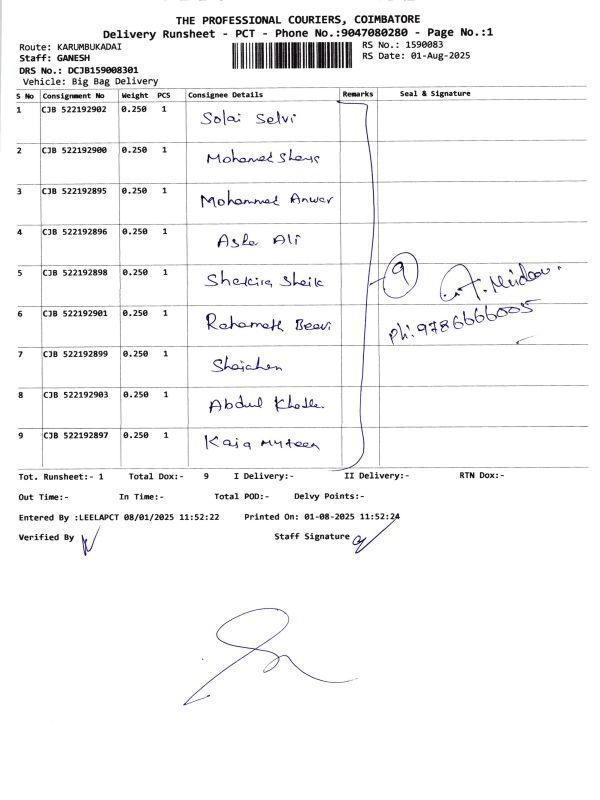 THE PROFESSIONAL COURIERS, COIMBATORE
Delivery Runsheet - PCT - Phone No.:9047080280 - Page No.:1
Route: KARUMBUKADAI RS No.: 1590083
Staff: GANESH RS Date: 01-Aug-2025
DRS No.: DCJB159008301
Vehicle: Big Bag Delivery
S No Consignment No Weight PCS Consignee Details Remarks Seal & Signature
1 CJB 522192902 0.250 1 Solai Selvi
2 CJB 522192900 0.250 1 Mohamed
3 CJB 522192895 0.250 1 Mohammed Anwar
4 CJB 522192896 0.250 1 Ali
5 CJB 522192898 0.250 1 Shakira Sheik
9
6 CJB 522192901 0.250 1 Rahamath Beevi
Ph: 9786666005
7 CJB 522192899 0.250 1
8 CJB 522192903 0.250 1 Abdul Khader
9 CJB 522192897 0.250 1 Kaja Myteen
Tot. Runsheet:- 1 Total Dox:- 9 I Delivery:- II Delivery:- RTN Dox:-
Out Time:- In Time:- Total POD:- Delvy Points:-
Entered By :LEELAPCT 08/01/2025 11:52:22 Printed On: 01-08-2025 11:52:24
Verified By Staff Signature